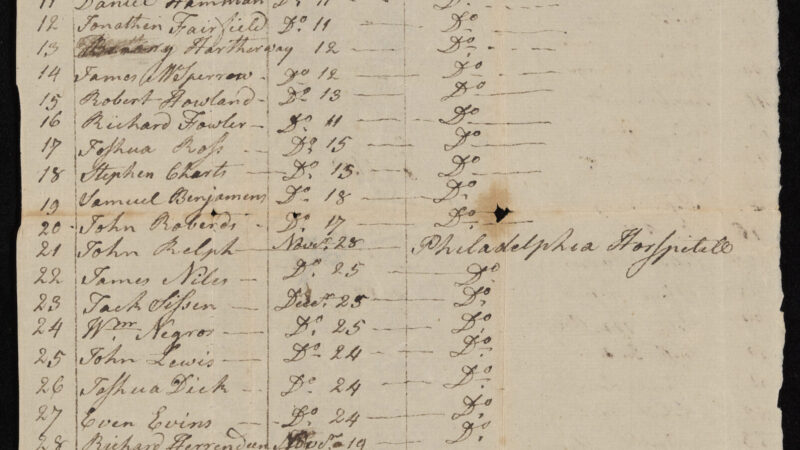 11 Daniel Hamman Do 11 Do
12 Jonathin Fairfield Do 11 Do
13 Hartherway 12 Do
14 James W Sperrow Do 12 Do
15 Robert Howland Do 13 Do
16 Richard Fowler Do 11 Do
17 Joshua Ross Do 15 Do
18 Stephen Charts Do 15 Do
19 Samuel Benjamens Do 18 Do
20 John Roberds Do 17 Do
21 John Relph Novr 28 Philadelphia Horspitell
22 James Niles Do 25 Do
23 Jack Sissen Decr 25 Do
24 Wm Negros Do 25 Do
25 John Lewis Do 24 Do
26 Joshua Dick Do 24 Do
27 Even Evins Do 24 Do
28 Richard Herrenden Novr 19 Do